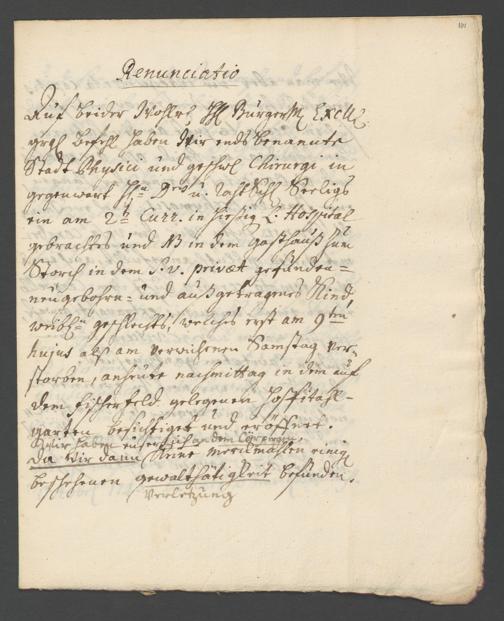 Renunciatio
Auf beider Wohlr. H. BürgerM. Excell.
grgl. Befehl haben Wir ends benannte
Stadt Physici und geschw. Chirurgi in
gegenwart H.n u. Seeligs
ein am 2.n Curr. in hiesig L. Hospital
gebrachtes und NB in dem gasthauß zum
Storch in dem S. v. privaet gefunden=
neugebohrn= und außgetragenes Kind,
weibl. geschlechts, welches erst am 9ten
hujus alß am verwichenen Samstag ver=
storben, anheute nachmittag in dem auf
dem fischerfeld gelegenen Hospithal=
garten besichtiget und eröffnet.
Wir haben euserlich an dem Corpore
da wir dann keine merckmahlen einig
beschehenen gewaltthätigkeit befunden.
verletzung